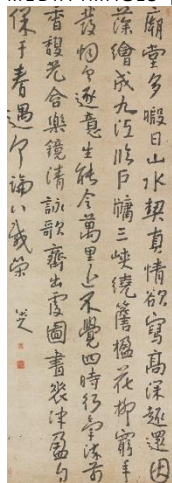 廟堂多暇日山水契真情欲寫高深趣還因
藻繪成九江臨戶牖三峽繞簷楹花柳窮年
發煙雲逐意生能令萬里近不覺四時行氣染荀
香馥光含樂鏡清詠歌齊出處圖書表沖盈自
保千春遇何論八載榮
八大山人